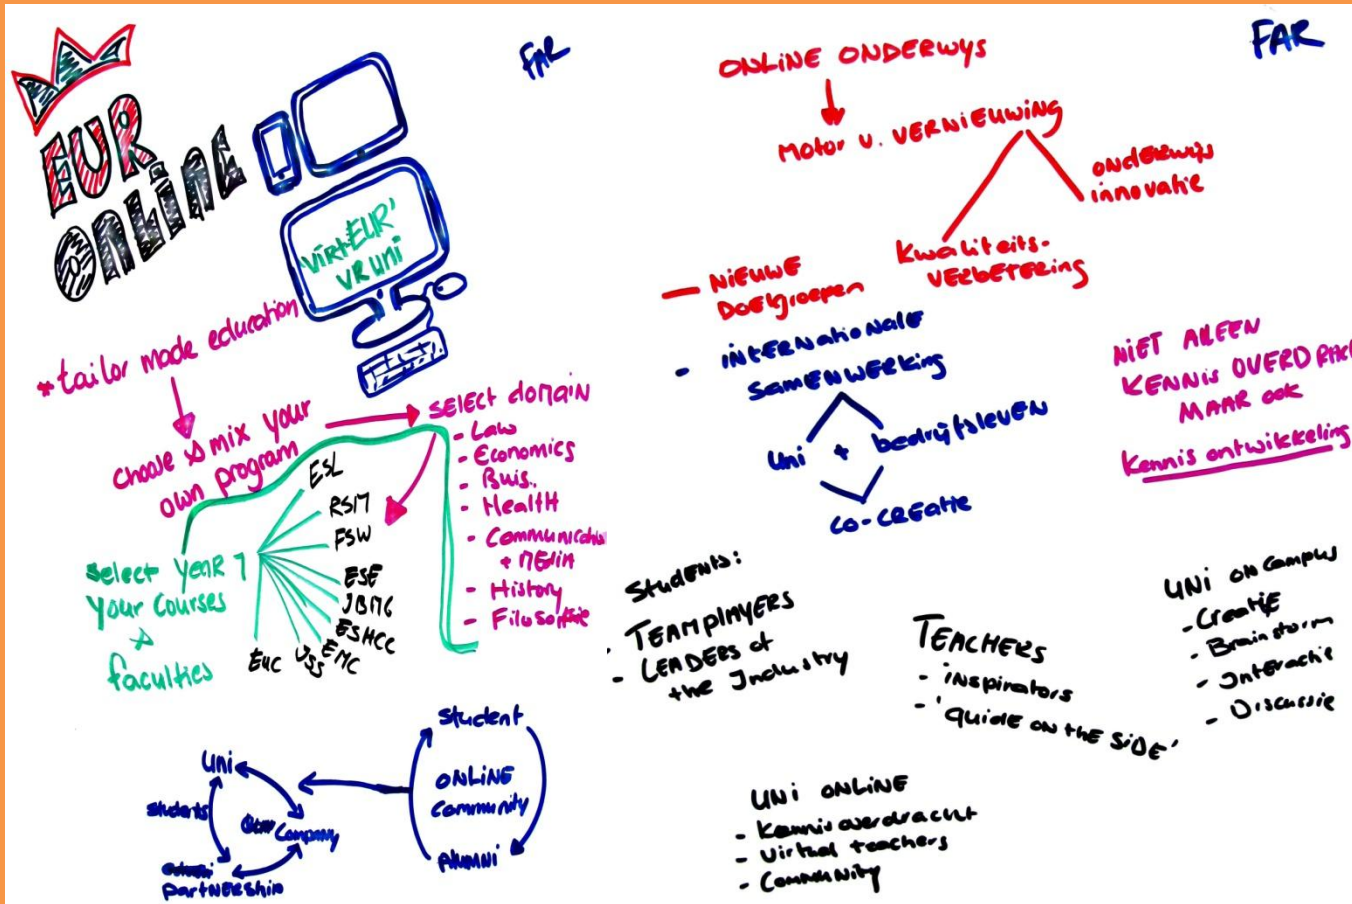 EUR
ONLINE
FAR
'VIRtEUR'
VR UNI
*tailor made education
choose & mix your
own program
SELECT domain
- Law
- Economics
- Buis.
- Health
- Communication
+ MEDIA
- History
- Filosofie
Select YEAR 1
Your Courses
&
faculties
ESL
RSM
FSW
ESE
ESHCC
EMC
EUC
student
ONLINE
Community
ALUMNI
UNI
students
Company
PartNERship
FAR
ONLINE ONDERWYS
Motor v. VERNIEUWING
ONDERWIJS
innovatie
Kwaliteits-
VERBETERing
— NIEUWE
DOElgroepen
- iNtERNationale
SamENWERking
Uni + bedrijfsleven
CO-CREatie
NIET ALLEEN
KENNis
MAAR OOK
Kennis ontwikkeling
Students:
- TEAMPlAYERS
- LEADERS of
the Industry
TEACHERS
- inspirators
- 'GUIDE ON tHE SiDE'
UNI ON Campus
- Creatie
- Brainstorm
- Interactie
- Discussie
UNI ONLINE
- Kennisoverdracht
- Virtual teachers
- Community